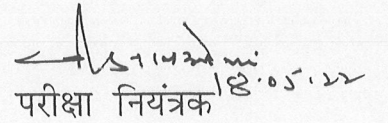 18.05.22
परीक्षा नियंत्रक